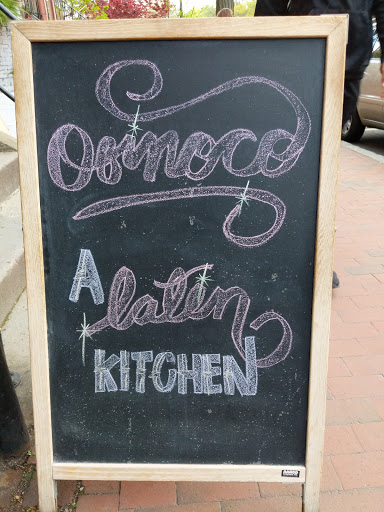 Orinoco
A
latin
KITCHEN